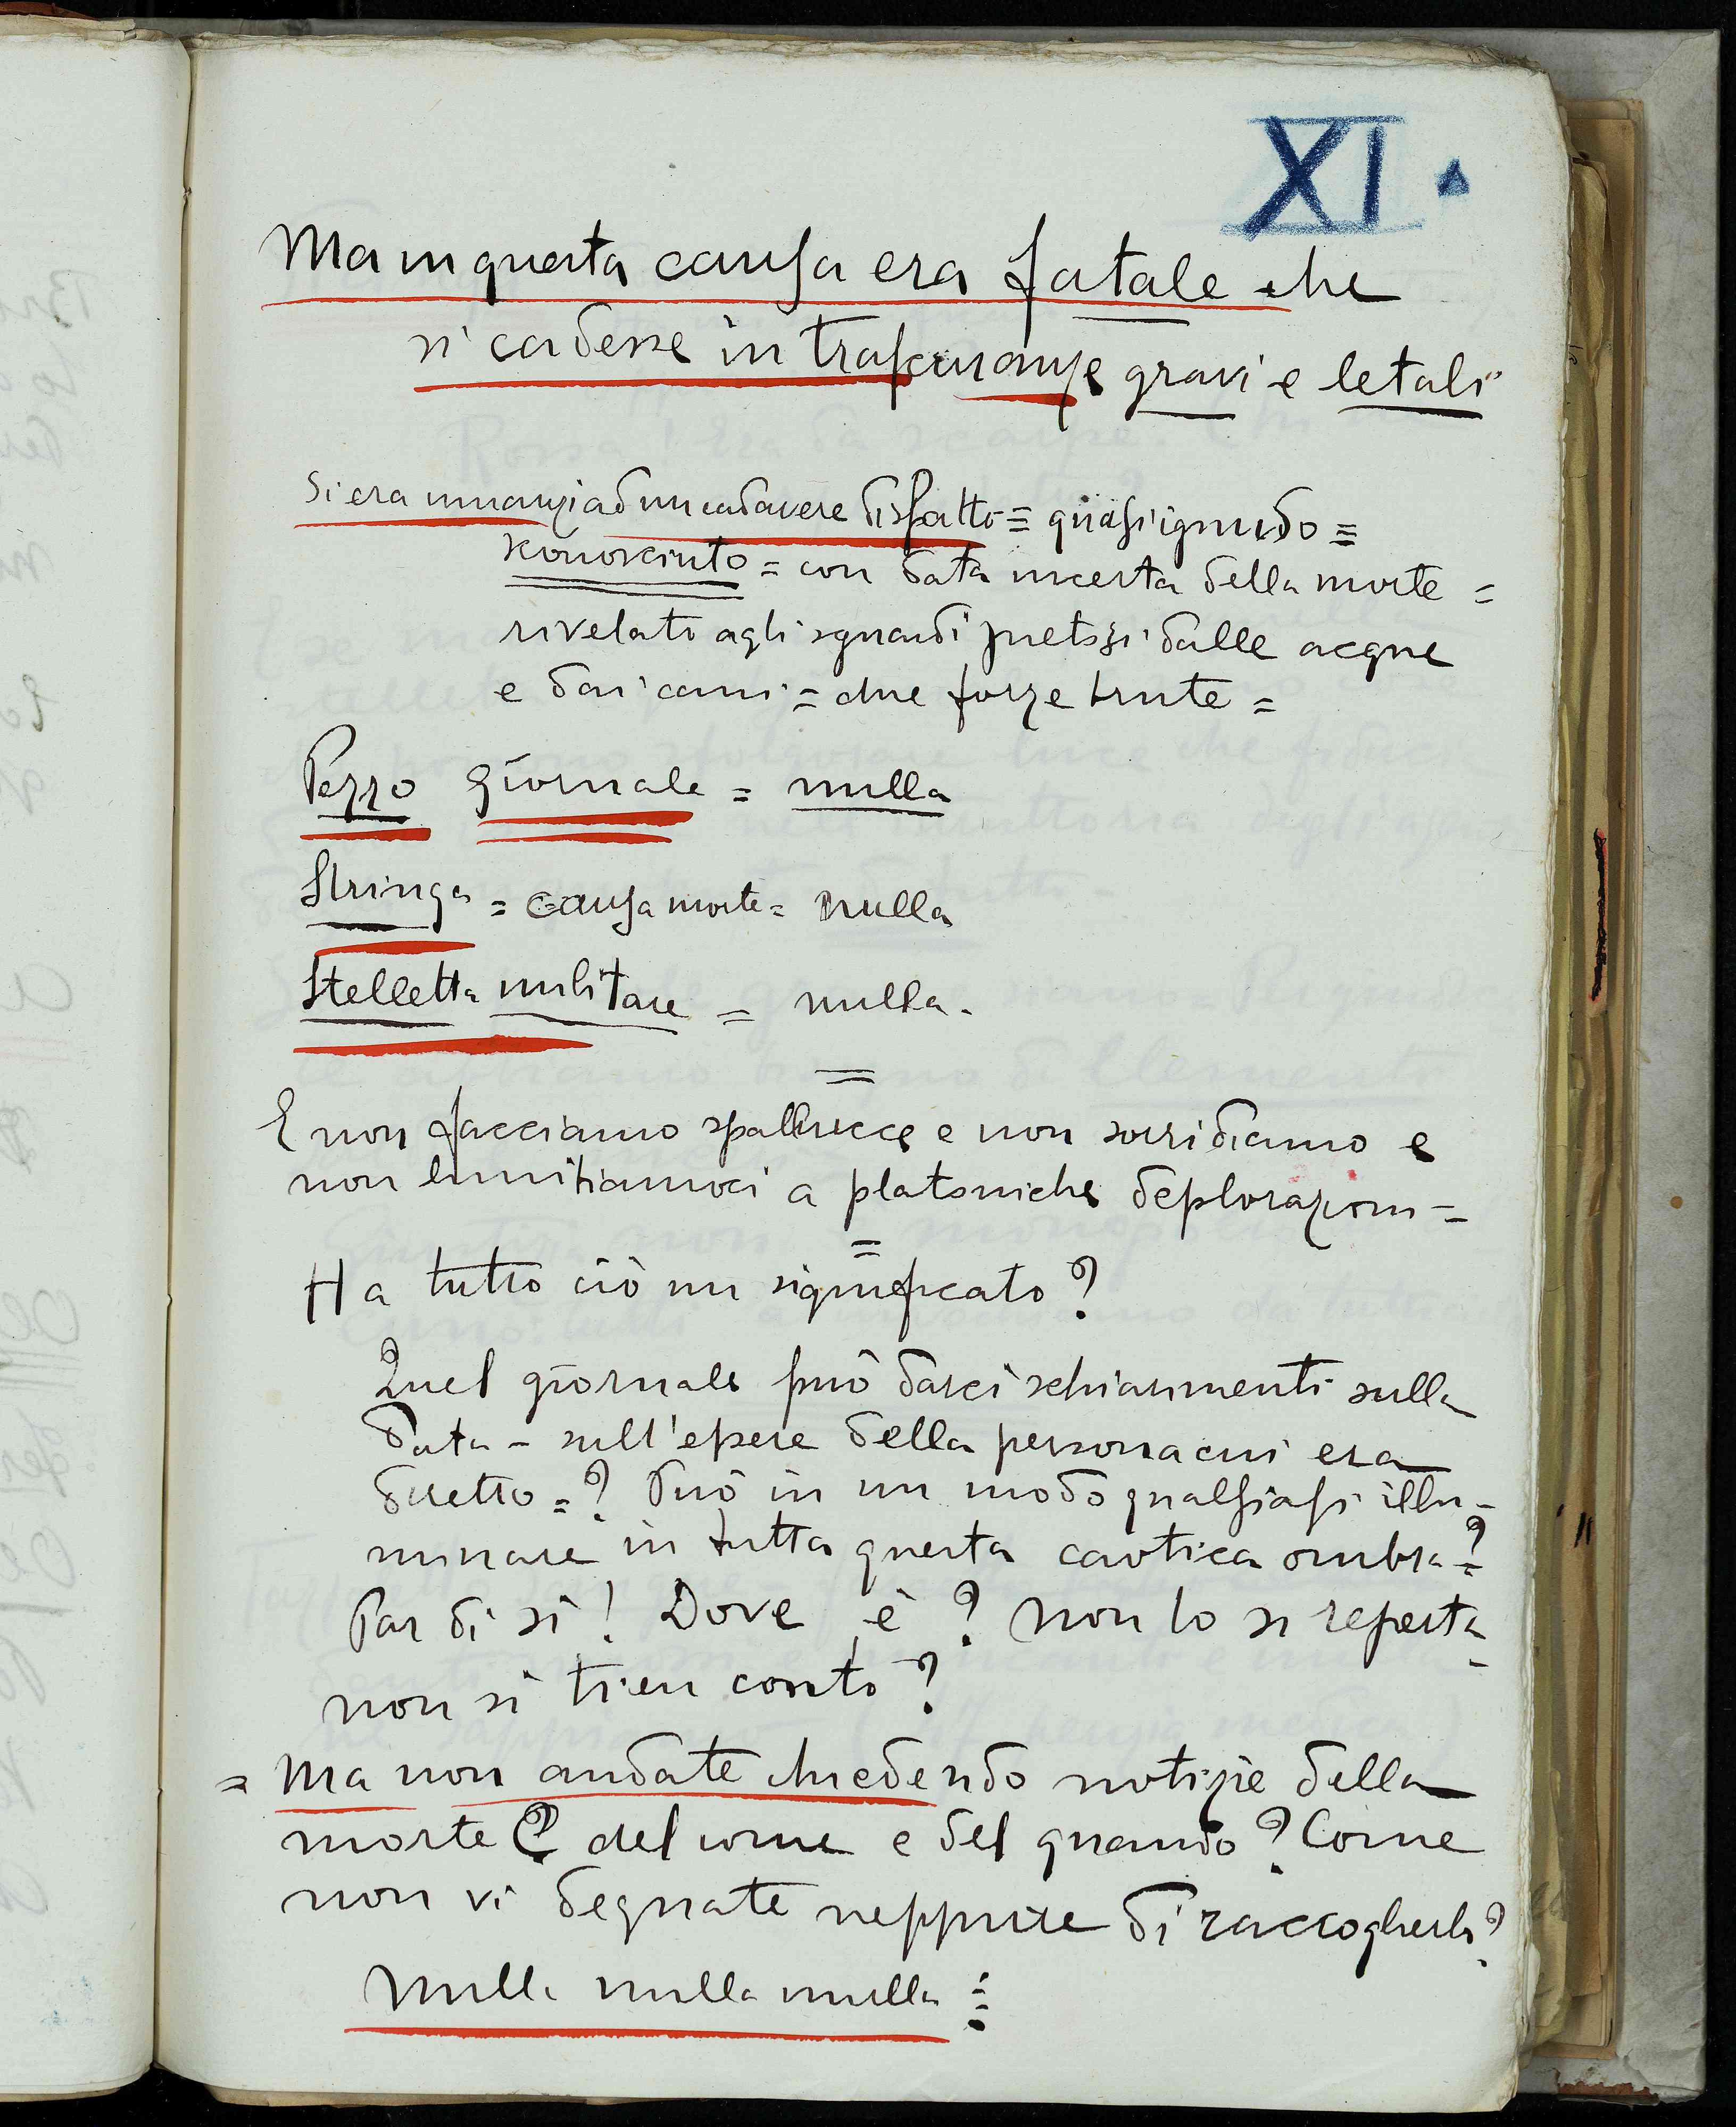 XI.
Ma in questa causa era fatale che
si cadesse in trascuranze gravi e letali
Si era innanzi ad un cadavere disfatto = quasi ignudo =
sconosciuto = con data incerta della morte =
rivelato agli sguardi pietosi dalle acque
e dai cani = due forze brute =
Pezzo giornale = nulla
Stringa = causa morte = nulla
Stelletta militare = nulla.
=
E non facciamo spallucce e non sorridiamo e
non limitiamoci a platoniche deplorazioni =
=
Ha tutto ciò un significato?
Quel giornale può darci schiarimenti sulla
data - sull'essere della persona cui era
diretto = ? Può in un modo qualsiasi illu-
minare in tutta questa caotica ombra = ?
Par di sì! Dove è? Non lo si reperta
non si tien conto?
= Ma non andate chiedendo notizie della
morte? del come e del quando? Come
non vi degnate neppure di raccoglierlo?
Nulla nulla nulla